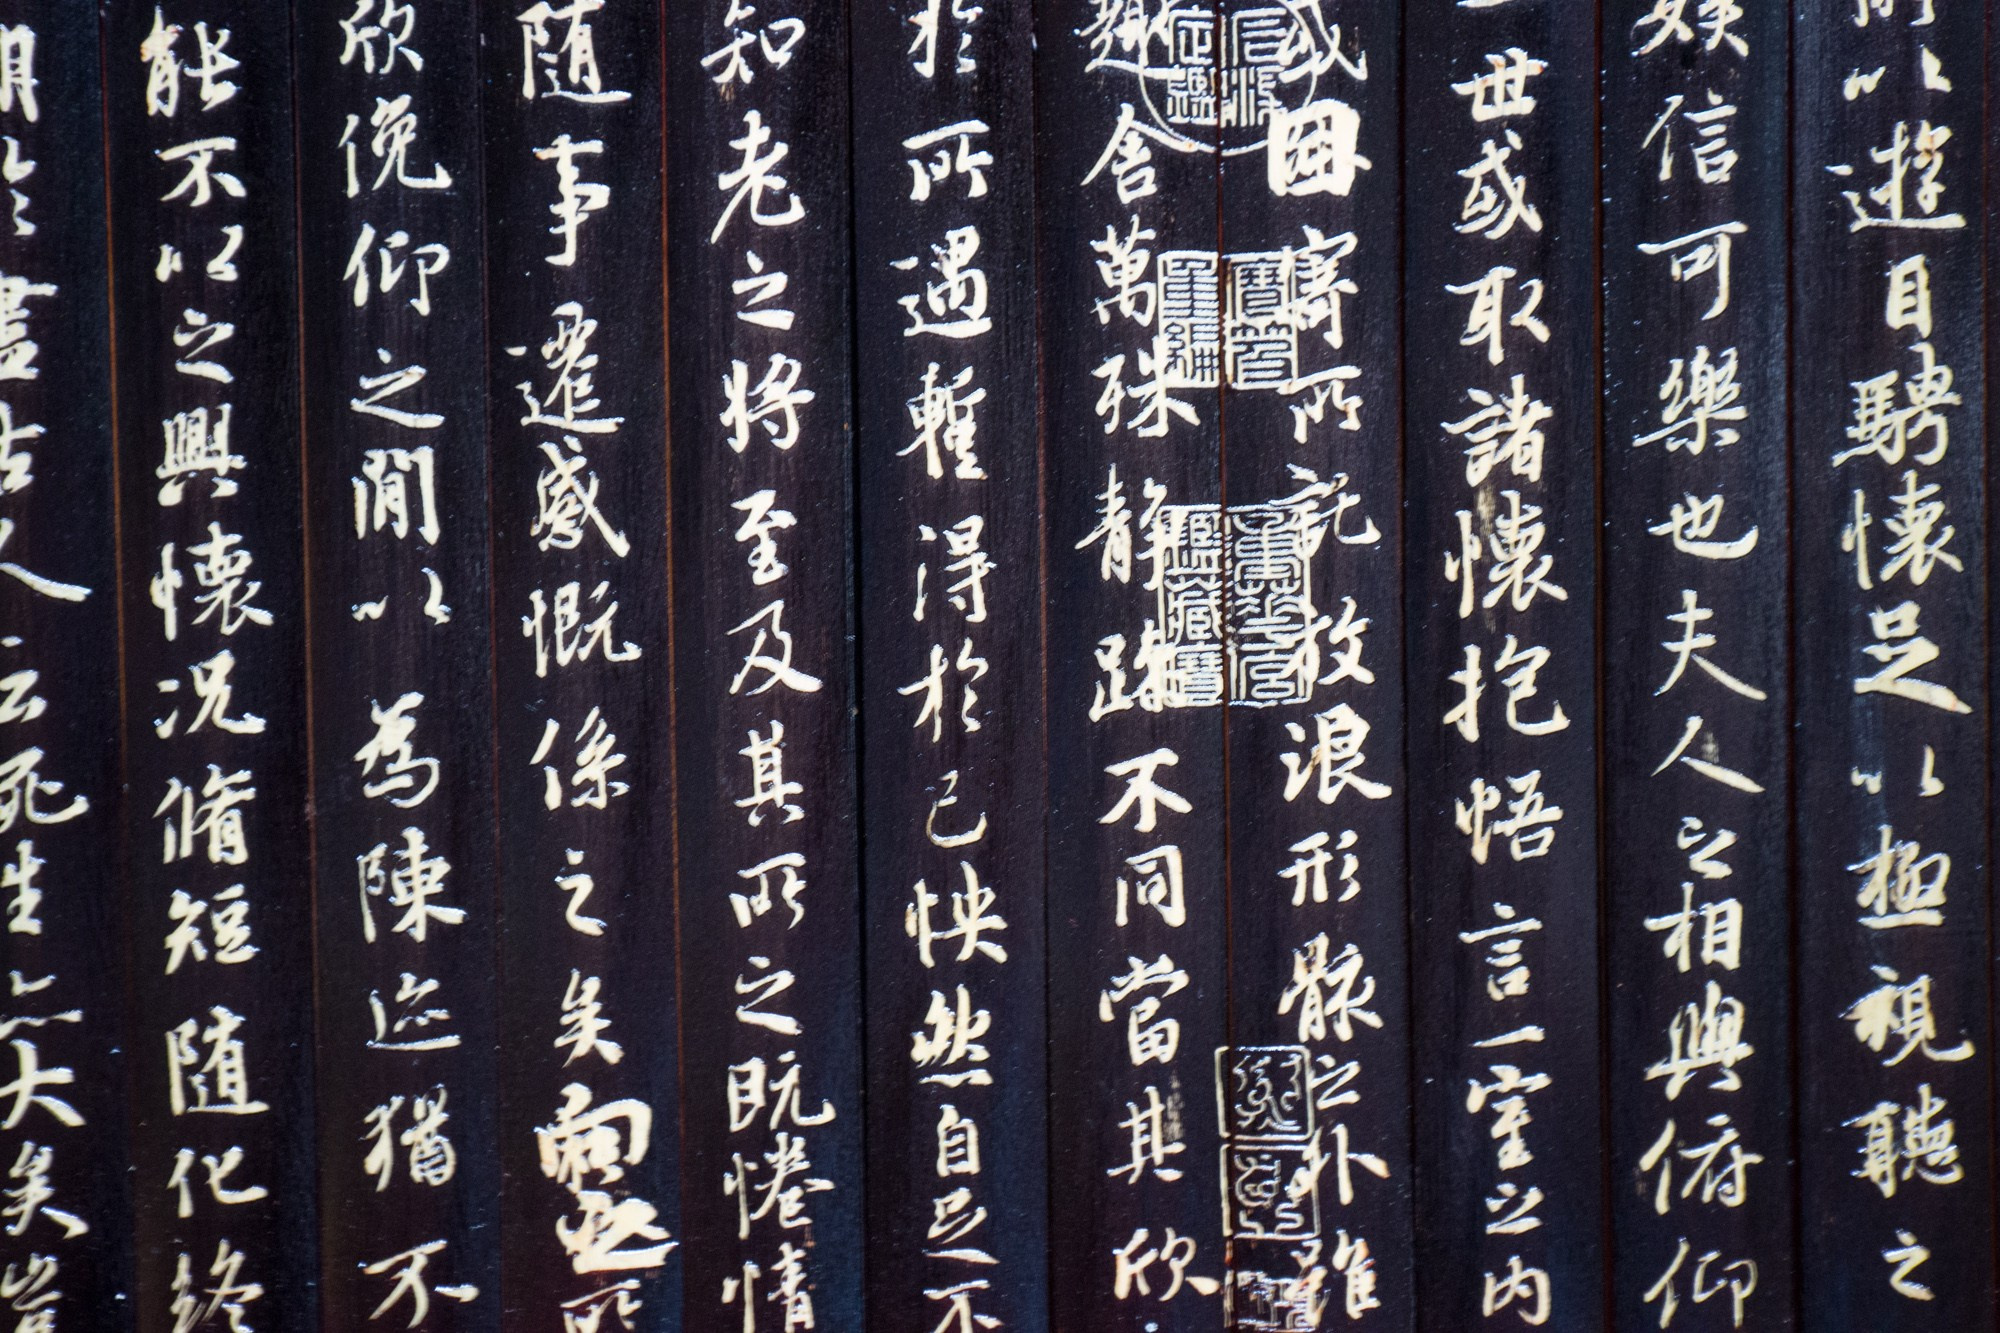 所以遊目騁懷足以極視聽之
娱信可樂也夫人之相與俯仰
一世或取諸懷抱悟言一室之内
或因寄所託放浪形骸之外雖
趣舍萬殊静躁不同當其欣
於所遇暫得於己怏然自足不
知老之將至及其所之既惓情
随事遷感慨係之矣向之所
欣俛仰之閒以為陳迹猶不
能不以之興懷况脩短随化終
期於盡古人云死生亦大矣豈